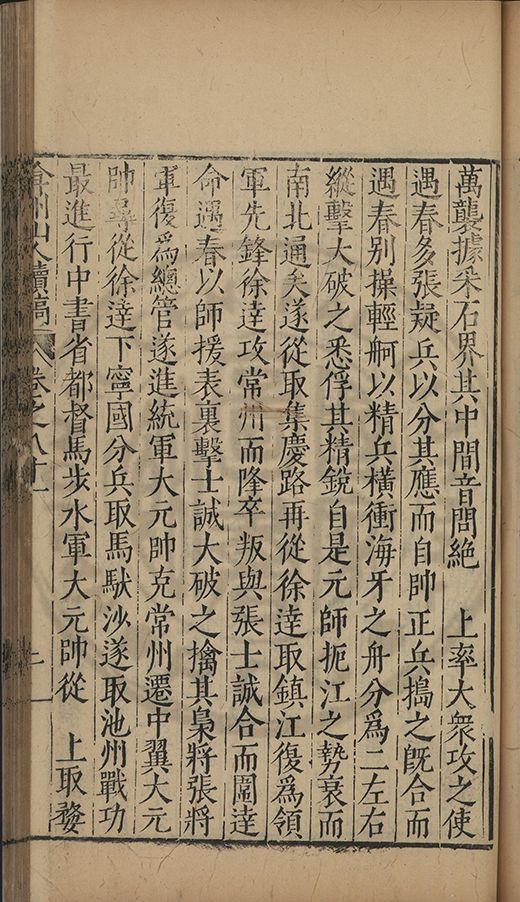 萬襲據釆石界其中間音問絶　上率大衆攻之使
遇春多張疑兵以分其應而自帥正兵搗之旣合而
遇春别操輕舸以精兵橫衝海牙之舟分爲二左右
縱擊大破之悉俘其精銳自是元師扼江之勢衰而
南北通矣遂從取集慶路再從徐達取鎮江復爲領
軍先鋒徐達攻常州而隆卒叛與張士誠合而圍達
命遇春以師援表裏擊士誠大破之擒其梟將張將
軍復爲總管遂進統軍大元帥克常州遷中翼大元
帥尋從徐達下寧國分兵取馬馱沙遂取池州戰功
最進行中書省都督馬步水軍大元帥從　上取婺
弇州山人續稿　卷之八十一